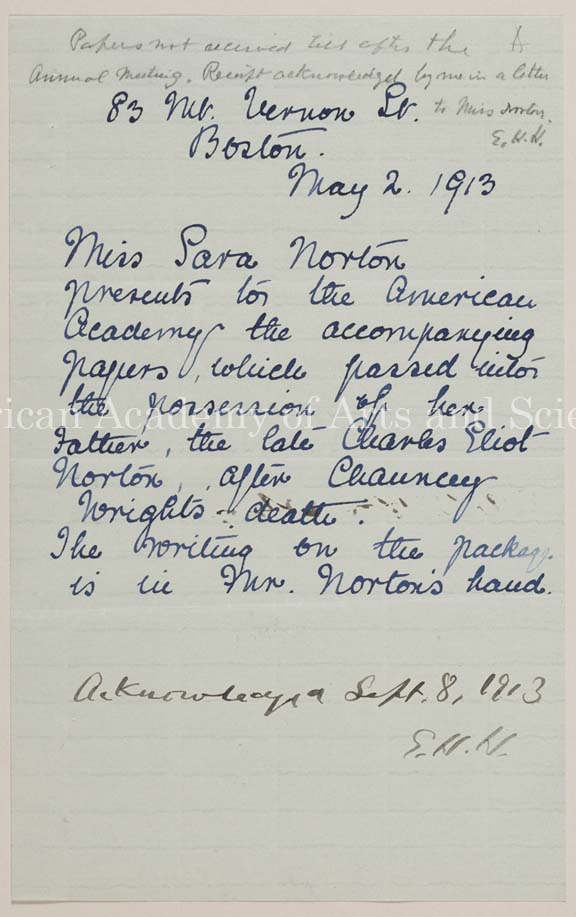 Papers not received till after the
Annual Meeting. Receipt acknowledged by me in a letter
to Miss Norton.
E.H.H.
83 Mt. Vernon St.
Boston.
May 2. 1913
Miss Sara Norton
presents to the American
Academy the accompanying
papers, which passed into
the possession of her
Father, the late Charles Eliot
Norton, after Chauncey
Wrights death.
The writing on the package
is in Mr. Norton's hand.
Acknowledged Sept. 8, 1913
E.H.H.
rican Academy of Arts and Scie